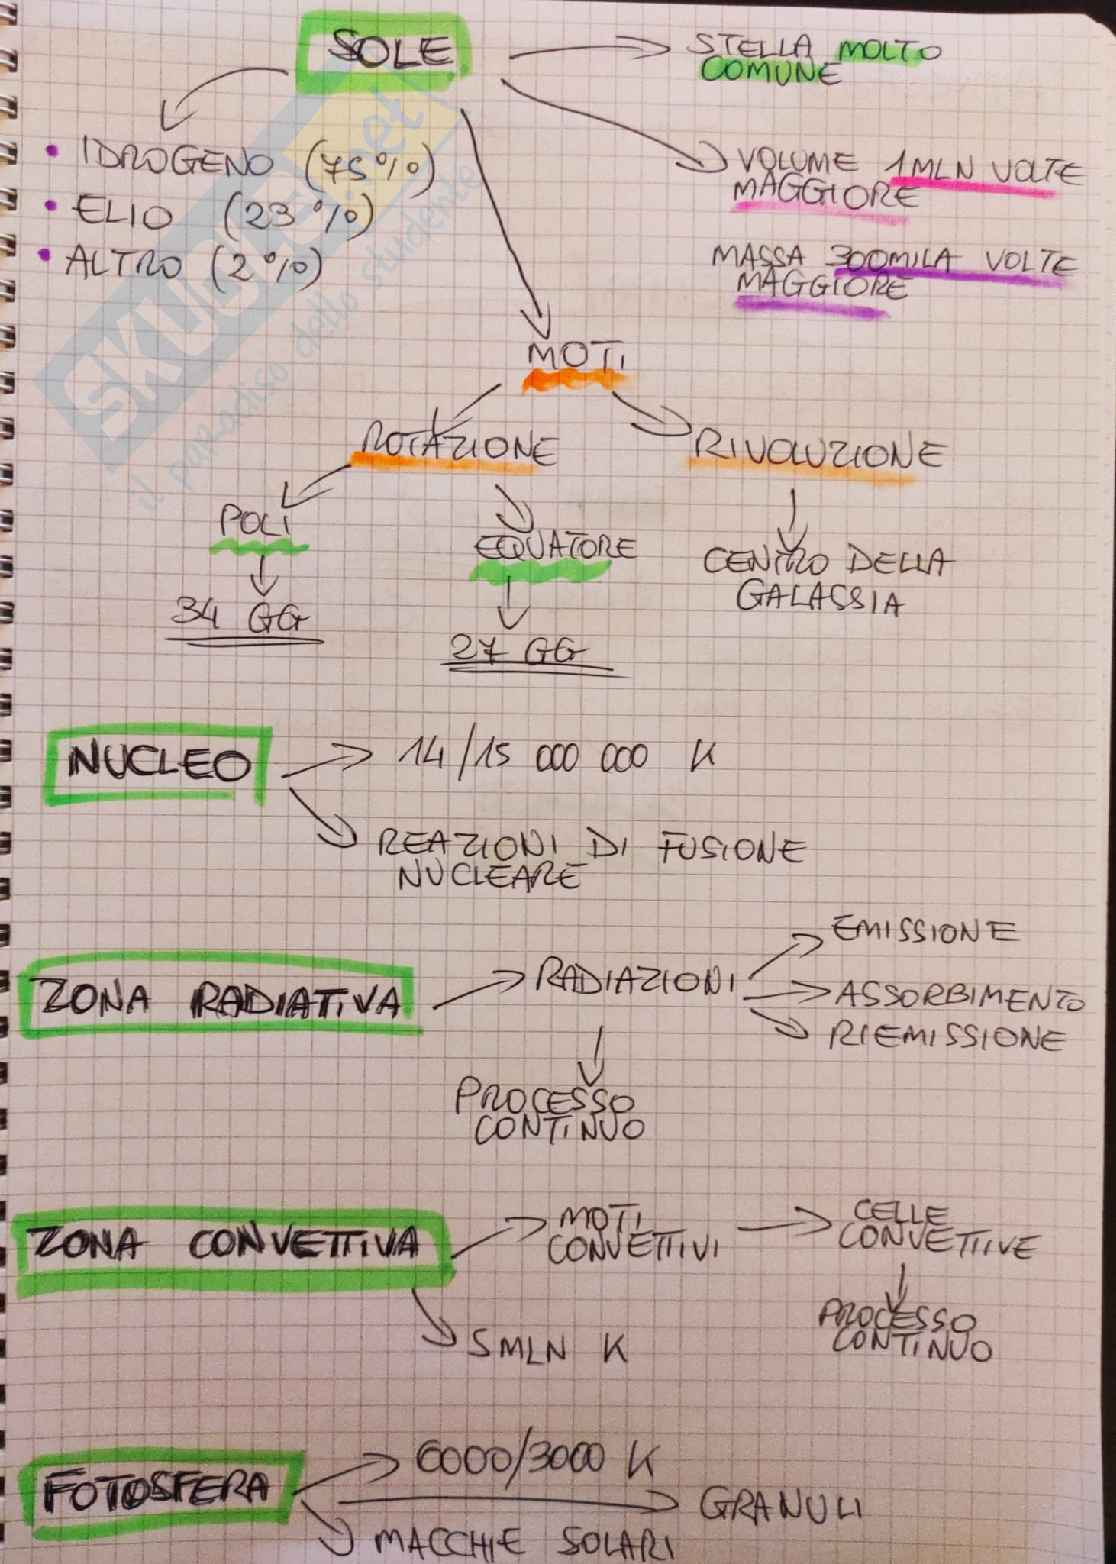 SOLE
STELLA MOLTO
COMUNE
• IDROGENO (75%)
• ELIO (23%)
• ALTRO (2%)
VOLUME 1MLN VOLTE
MAGGIORE
MASSA 300MILA VOLTE
MAGGIORE
MOTI
ROTAZIONE
RIVOLUZIONE
POLI
EQUATORE
CENTRO DELLA
GALASSIA
34 GG
27 GG
NUCLEO
14/15 000 000 K
REAZIONI DI FUSIONE
NUCLEARE
ZONA RADIATIVA
RADIAZIONI
EMISSIONE
ASSORBIMENTO
RIEMISSIONE
PROCESSO
CONTINUO
ZONA CONVETTIVA
MOTI
CONVETTIVI
CELLE
CONVETTIVE
PROCESSO
CONTINUO
5MLN K
FOTOSFERA
6000/3000 K
GRANULI
MACCHIE SOLARI
SKUOLA.net
il paradiso dello studente